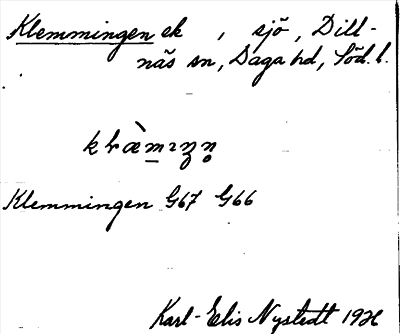 Klemmingen ek , sjö, Dill-
näs sn, Daga hd, Söd. l.
Klemmingen G67 G66
Karl-Elis Nystedt